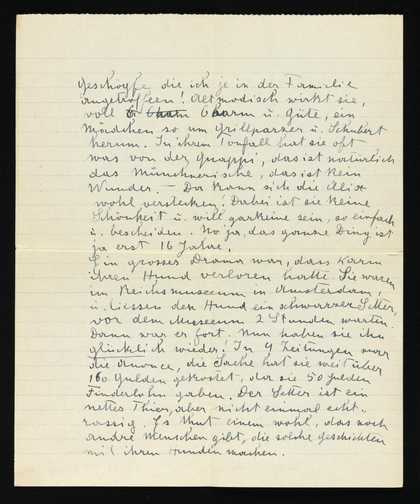 Geschöpfe, die ich je in der Familie
angetroffen! Altmodisch wirkt sie,
voll Charm u. Güte, ein
Mädchen so um Grillparzer u. Schubert
herum. In ihrem Tonfall hat sie oft
was von der Quappi, das ist natürlich
das Münchnerische, das ist kein
Wunder. – Da kann sich die Alix
wohl verstecken! Dabei ist sie keine
Schönheit u. will gar keine sein, so einfach
u. bescheiden. No ja, das ganze Ding ist
ja erst 16 Jahre.
Ein grosses Drama war, dass Karin
ihren Hund verloren hatte. Sie waren
im Reichsmuseeum in Amsterdam,
u. liessen den Hund ein schwarzer Setter,
vor dem Museeum 2 Stunden warten.
Dann war er fort. Nun haben sie ihn
glücklich wieder! In 4 Zeitungen war
die Anonce, die Sache hat sie weit über
100 Gulden gekostet, da sie 50 Gulden
Finderlohn gaben. Der Setter ist ein
nettes Thier, aber nicht einmal echt-
rassig. Es thut einem wohl, das noch
andre Menschen gibt, die solche Geschichten
mit ihren Hunden machen.